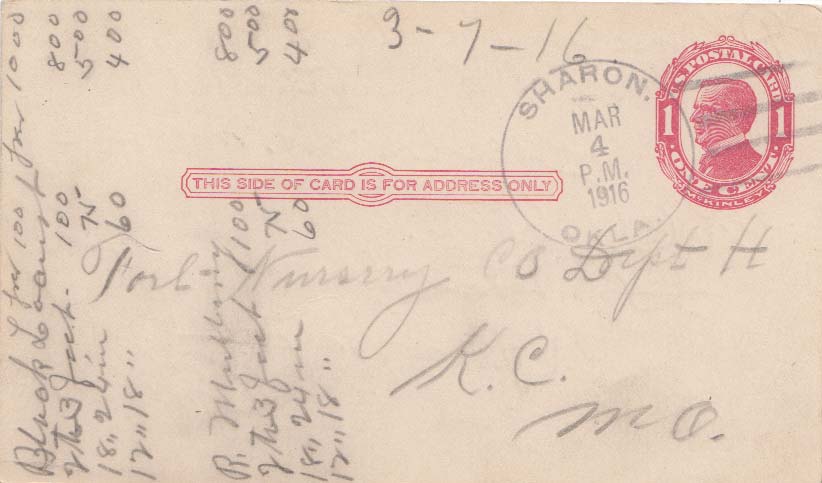 3-7-16
SHARON.
MAR
4
P.M.
1916
OKLA.
U.S. POSTAL CARD
1 1
ONE CENT
McKINLEY
THIS SIDE OF CARD IS FOR ADDRESS ONLY
Nursery Co Dept H
K.C.
Mo.
Black Locust per 100 per 1000
2 to 3 feet. 100 800
18" 24 in 75 500
12" 18" 60 400
R. Mulberry
2 to 3 feet 100 800
18" 24 in 75 500
12" 18" 60 400